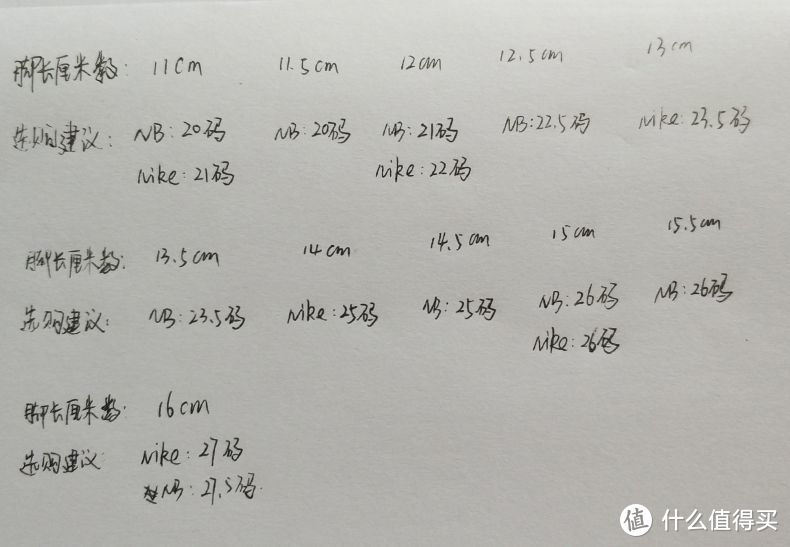 脚长厘米数: 11cm 11.5cm 12cm 12.5cm 13cm
选购建议: NB:20码 NB:20码 NB:21码 NB:22.5码 Nike:23.5码
Nike:21码 Nike:22码
脚长厘米数: 13.5cm 14cm 14.5cm 15cm 15.5cm
选购建议: NB:23.5码 Nike:25码 NB:25码 NB:26码 NB:26码
Nike:26码
脚长厘米数: 16cm
选购建议 Nike:27码
NB:27.5码.
值 什么值得买